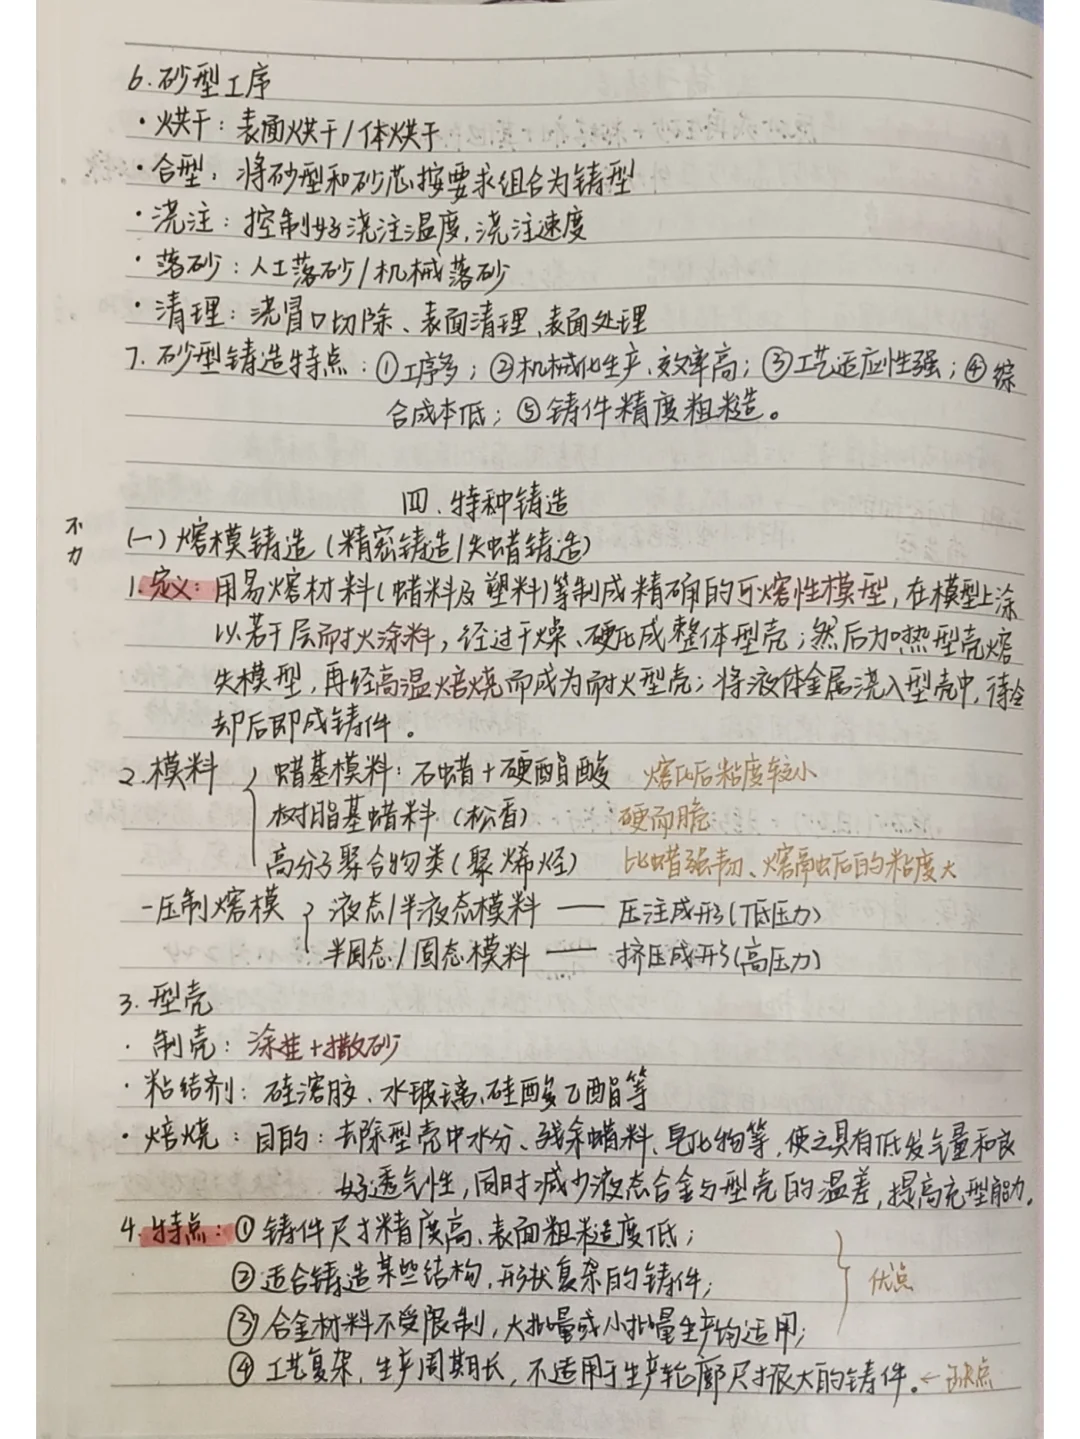 6.砂型工序
·烘干：表面烘干/体烘干
·合型：将砂型和砂芯按要求组合为铸型
·浇注：控制好浇注温度，浇注速度
·落砂：人工落砂/机械落砂
·清理：浇冒口切除、表面清理、表面处理
7.砂型铸造特点：①工序多；②机械化生产、效率高；③工艺适应性强；④综
合成本低；⑤铸件精度粗糙。
四.特种铸造
不
力
(一)熔模铸造(精密铸造/失蜡铸造)
1.定义：用易熔材料(蜡料及塑料)等制成精确的可熔性模型，在模型上涂
以若干层耐火涂料，经过干燥、硬化成整体型壳；然后加热型壳熔
失模型，再经高温焙烧而成为耐火型壳；将液体金属浇入型壳中，待冷
却后即成铸件。
2.模料 蜡基模料：石蜡+硬酯酸 熔化后粘度较小
树脂基蜡料(松香) 硬而脆
高分子聚合物类(聚烯烃) 比蜡强韧、熔融后的粘度大
-压制熔模 液态/半液态模料——压注成形(低压力)
半固态/固态模料——挤压成形(高压力)
3.型壳
·制壳：涂挂+撒砂
·粘结剂：硅溶胶、水玻璃、硅酸乙酯等
·焙烧：目的：去除型壳中水分、残余蜡料、皂化物等，使之具有低发气量和良
好透气性，同时减少液态合金与型壳的温差，提高充型能力。
4.特点：①铸件尺寸精度高、表面粗糙度低；
②适合铸造某些结构、形状复杂的铸件； 优点
③合金材料不受限制，大批量或小批量生产均适用；
④工艺复杂，生产周期长，不适用于生产轮廓尺寸很大的铸件。←缺点